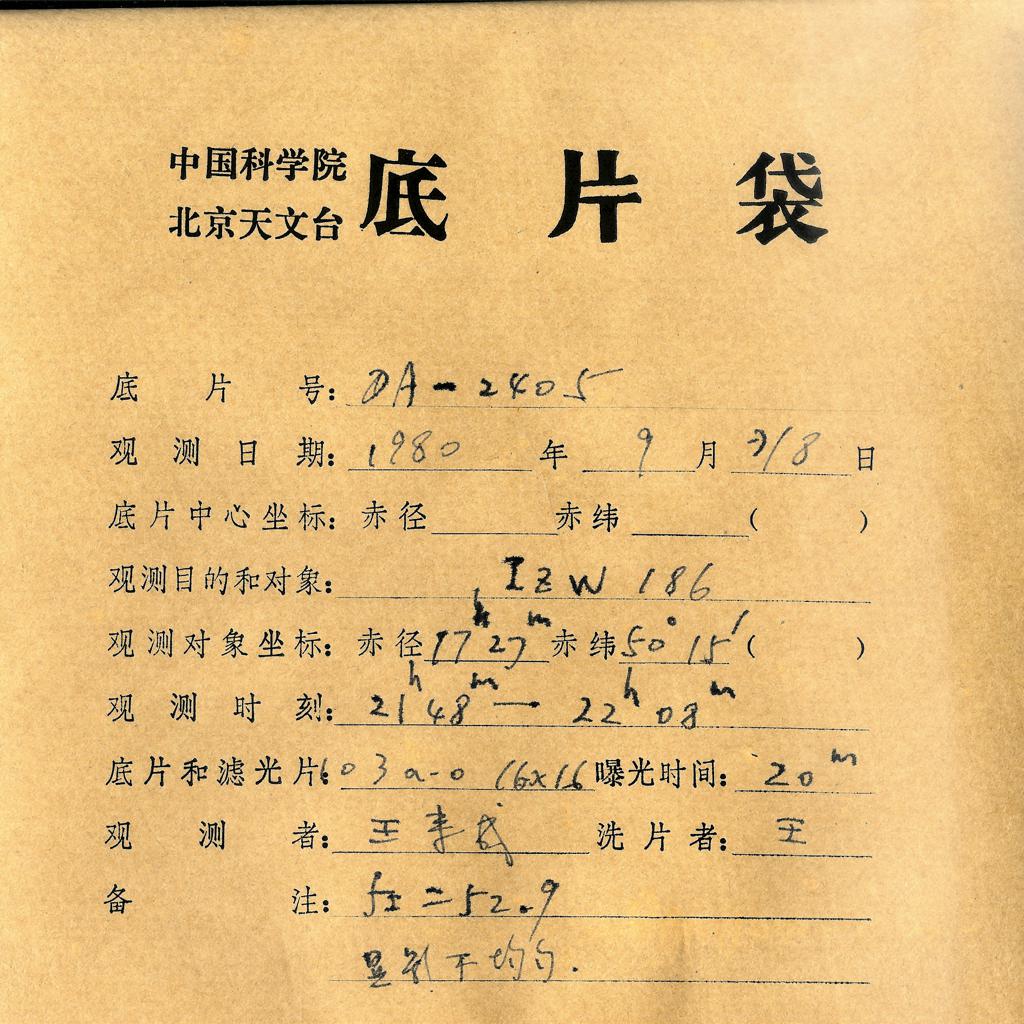 中国科学院
北京天文台
底片袋
底片号: DA-2405
观测日期: 1980年 9月 7/8日
底片中心坐标: 赤径 赤纬 ( )
观测目的和对象: IZW 186
观测对象坐标: 赤径 17h 27m 赤纬 50° 15′ ( )
观测时刻: 21h 48m — 22h 08m
底片和滤光片: 103a-0 16x16 曝光时间: 20m
观测者: 王 洗片者: 王
备注: = 52.9
不均匀.